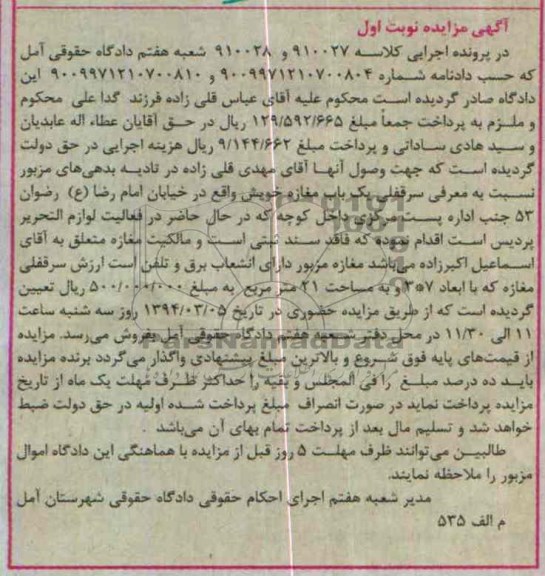 آگهی مزایده نوبت اول
در پرونده اجرایی کلاسه ۹۱۰۰۲۷ و ۹۱۰۰۲۸ شعبه هفتم دادگاه حقوقی آمل
که حسب دادنامه شماره ۹۰۰۹۹۷۱۲۱۰۷۰۰۸۰۴ و ۹۰۰۹۹۷۱۲۱۰۷۰۰۸۱۰ این
دادگاه صادر گردیده است محکوم علیه آقای عباس قلی زاده فرزند گدا علی محکوم
و ملزم به پرداخت جمعاً مبلغ ۱۲۹/۵۹۲/۶۶۵ ریال در حق آقایان عطاء اله عابدیان
و سید هادی ساداتی و پرداخت مبلغ ۹/۱۴۴/۶۶۲ ریال هزینه اجرایی در حق دولت
گردیده است که جهت وصول آنها آقای مهدی قلی زاده در تادیه بدهی‌های مزبور
نسبت به معرفی سرقفلی یک باب مغازه خویش واقع در خیابان امام رضا (ع) رضوان
۵۳ جنب اداره پست مرکزی داخل کوچه که در حال حاضر در فعالیت لوازم التحریر
پردیس است اقدام نموده که فاقد سند ثبتی است و مالکیت مغازه متعلق به آقای
اسماعیل اکبرزاده می‌باشد مغازه مزبور دارای انشعاب برق و تلفن است ارزش سرقفلی
مغازه که با ابعاد ۷*۳ و به مساحت ۲۱ متر مربع به مبلغ ۵۰۰/۰۰۰/۰۰۰ ریال تعیین
گردیده است که از طریق مزایده حضوری در تاریخ ۱۳۹۴/۰۳/۰۵ روز سه شنبه ساعت
۱۱ الی ۱۱/۳۰ در محل دفتر شعبه هفتم دادگاه حقوقی آمل بفروش می‌رسد. مزایده
از قیمت‌های پایه فوق شروع و بالاترین مبلغ پیشنهادی واگذار می‌گردد برنده مزایده
باید ده درصد مبلغ را فی المجلس و بقیه را حداکثر ظرف مهلت یک ماه از تاریخ
مزایده پرداخت نماید در صورت انصراف مبلغ پرداخت شده اولیه در حق دولت ضبط
خواهد شد و تسلیم مال بعد از پرداخت تمام بهای آن می‌باشد .
طالبین می‌توانند ظرف مهلت ۵ روز قبل از مزایده با هماهنگی این دادگاه اموال
مزبور را ملاحظه نمایند.
مدیر شعبه هفتم اجرای احکام حقوقی دادگاه حقوقی شهرستان آمل
م الف ۵۳۵